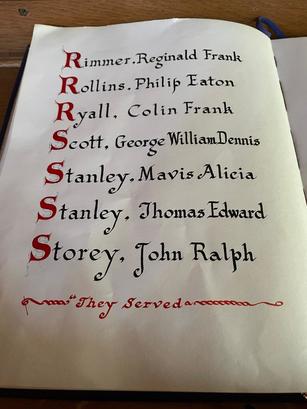 Rimmer. Reginald Frank
Rollins. Philip Eaton
Ryall, Colin Frank
Scott, George William Dennis
Stanley. Mavis Alicia
Stanley, Thomas Edward
Storey, John Ralph
"They Served